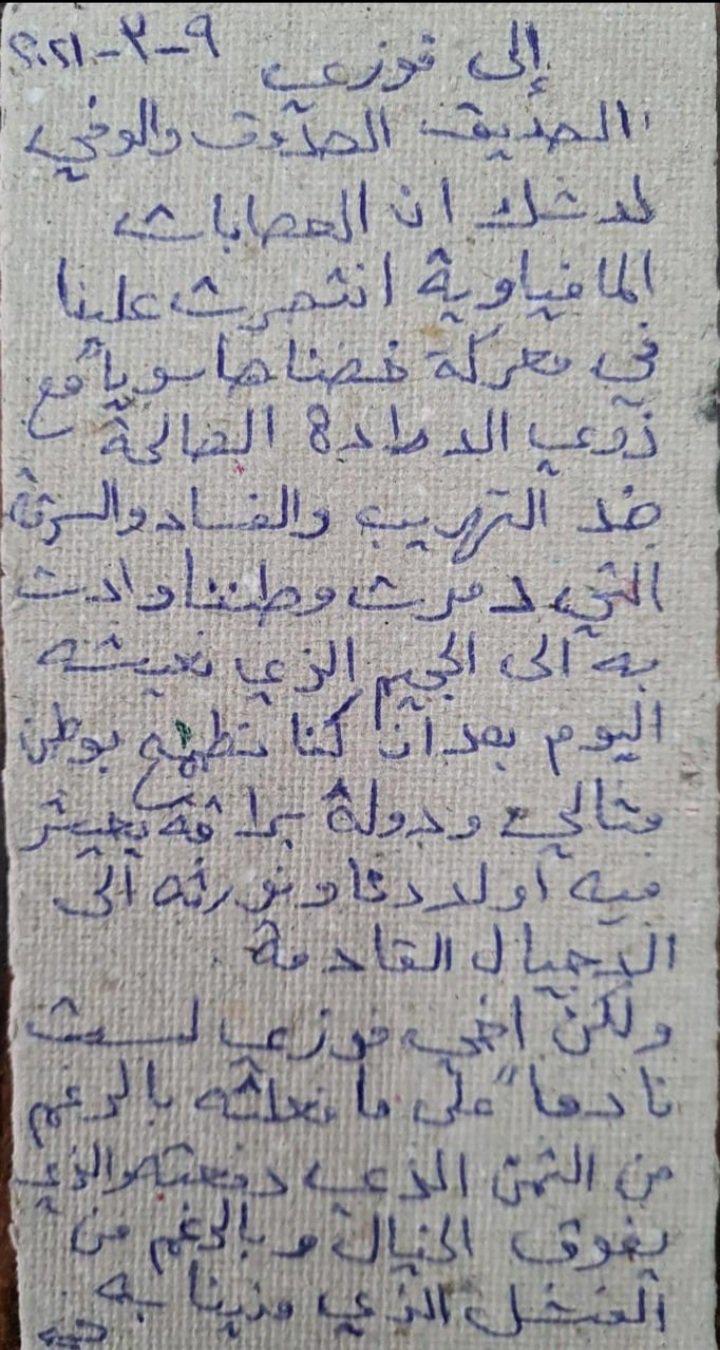 إلى فوزي ٩-٣-٢٠٢١
الصديق الصدوق والوفي
لا شك ان العصابات
المافياوية انتصرت علينا
في معركة خضناها سوياً مع
ذوي الارادة الصالحة
ضد التهريب والفساد والسرقة
التي دمرت وطننا وادت
به الى الجحيم الذي نعيشه
اليوم بعد ان كنا نطمح بوطن
مثالي ودولة براقة يعيش
فيه اولادنا ونورثه الى
الاجيال القادمة.
ولكن اخي فوزي لست
نادماً على ما فعلته بالرغم
من الثمن الذي دفعته والذي
يفوق الخيال وبالرغم من
الفشل الذي مزينا به